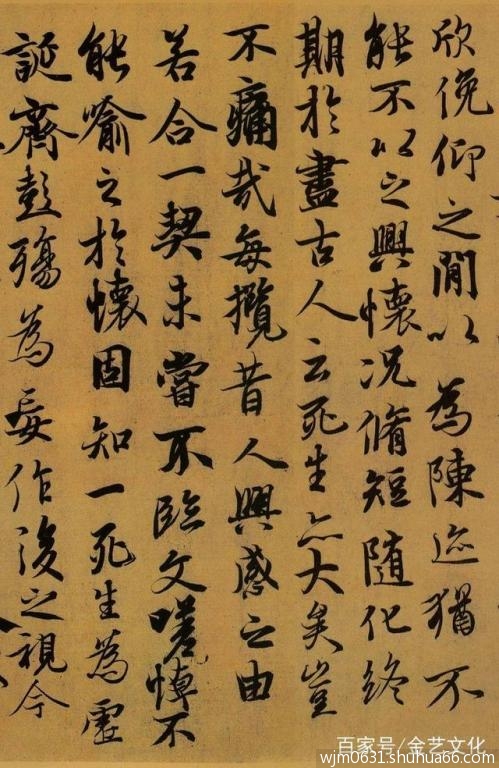 欣俛仰之閒以為陳迹猶不
能不以之興懷況脩短隨化終
期於盡古人云死生亦大矣豈
不痛哉每攬昔人興感之由
若合一契未嘗不臨文嗟悼不
能喻之於懷固知一死生為虛
誕齊彭殤為妄作後之視今
百家号/金艺文化
wjm0631.shuhua66.com